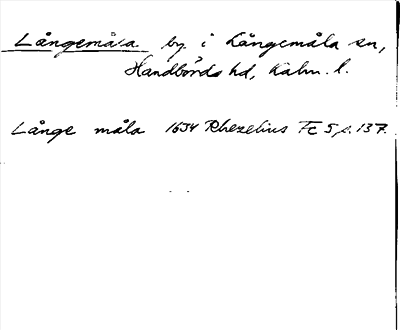 Långemåla by i Långemåla sn,
Handbörds hd, Kalm. l.
Långe måla 1634 Rhezelius Fc 5, s. 137.